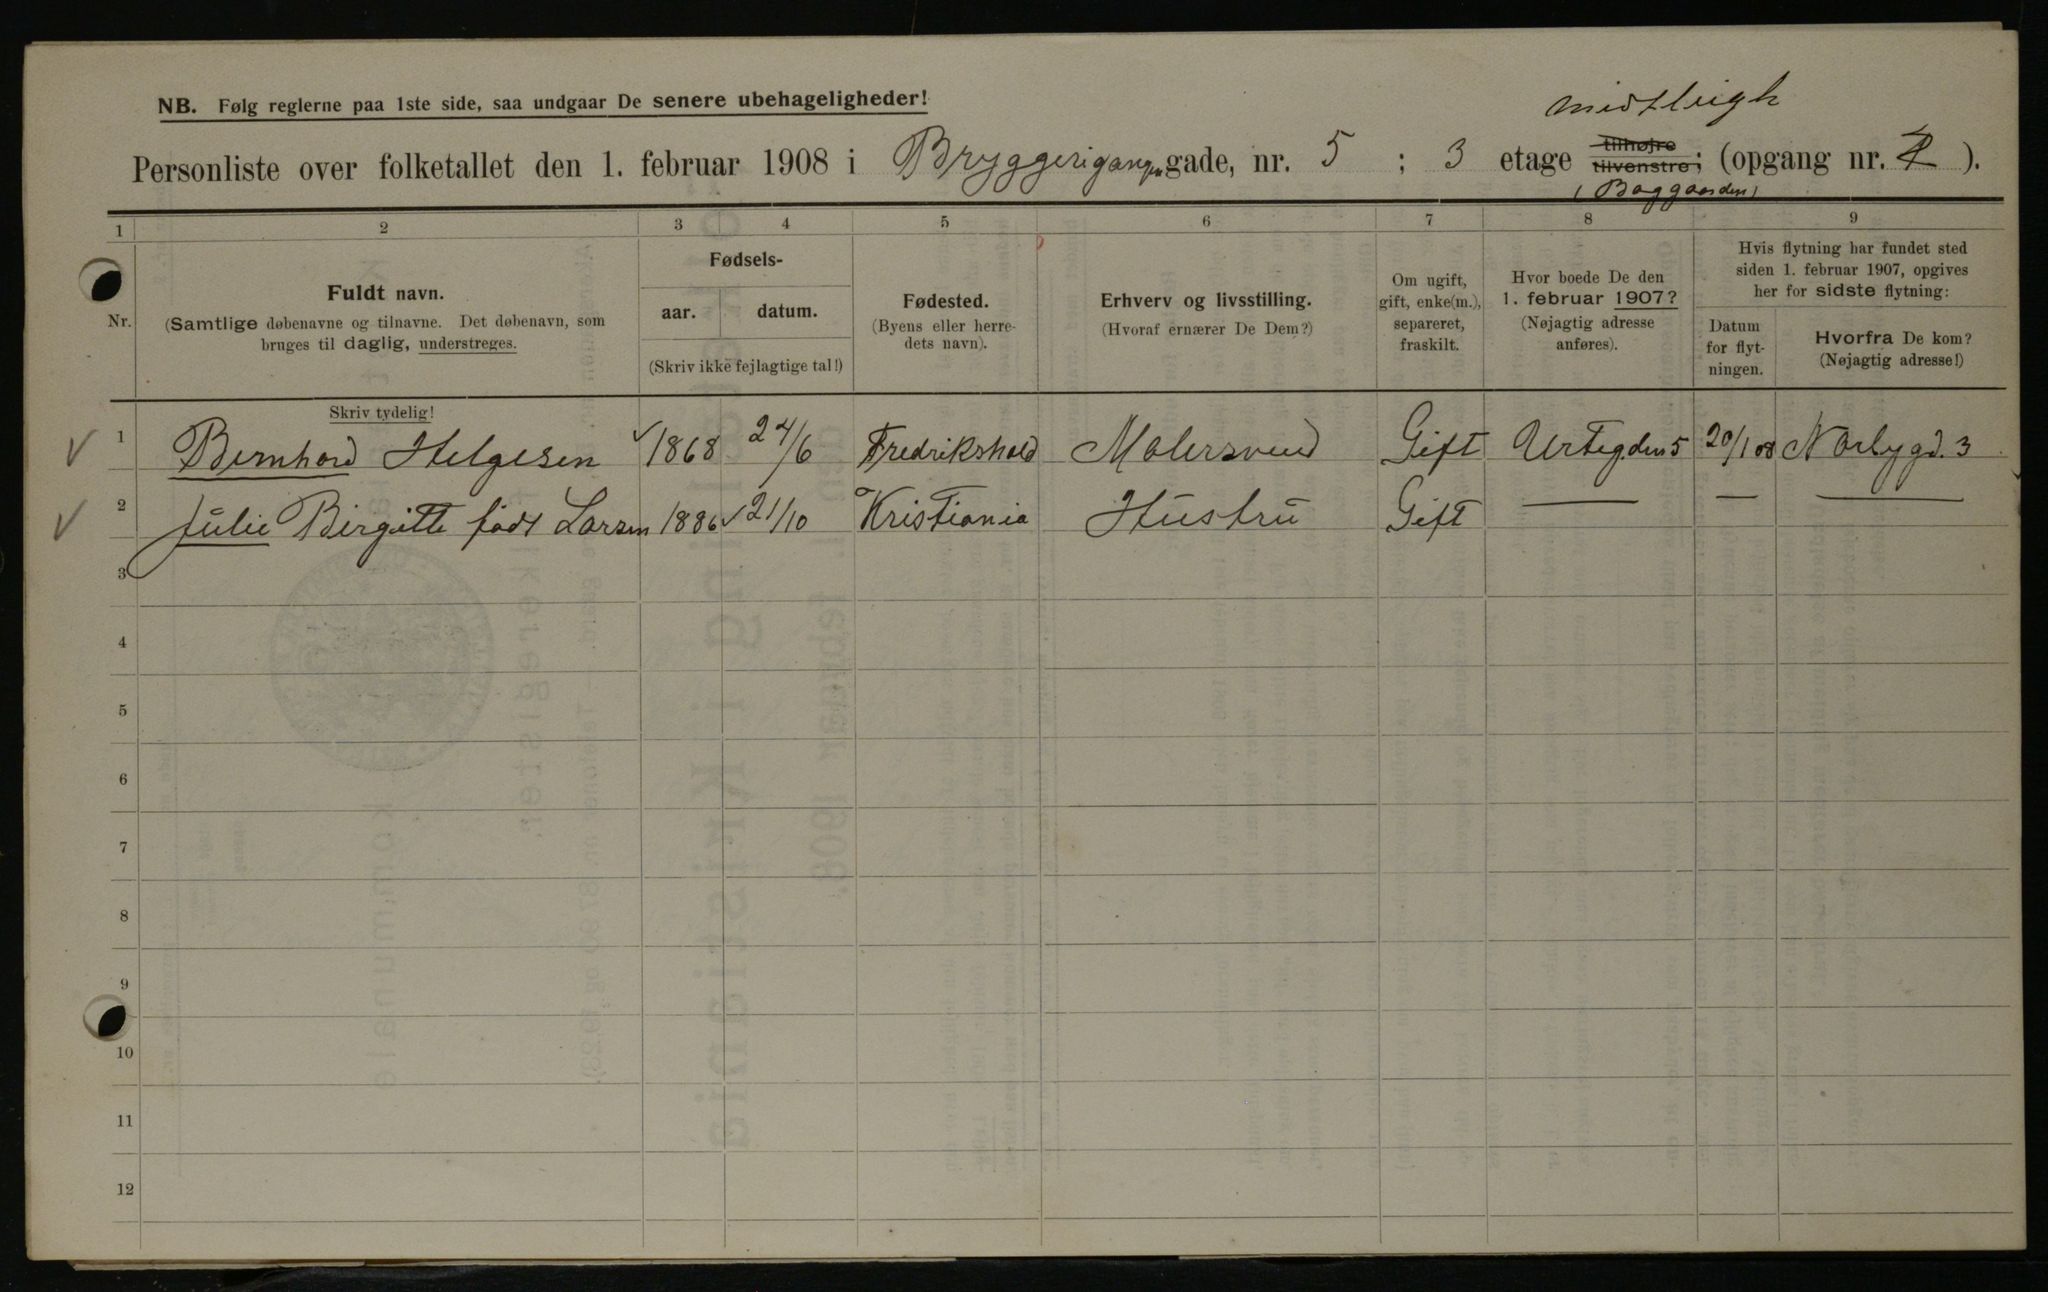 NB. Følg reglerne paa 1ste side, saa undgaar De senere ubehageligheder!
midtleigh
Personliste over folketallet den 1. februar 1908 i Bryggerigangen gade, nr. 5 ; 3 etage tilhøjre tilvenstre; (opgang nr. ).
(Baggaarden)
1 2 3 4 5 6 7 8 9
Nr.
Fuldt navn.
(Samtlige døbenavne og tilnavne. Det døbenavn, som
bruges til daglig, understreges.
Fødsels-
aar. datum.
(Skriv ikke fejlagtige tal!)
Fødested.
(Byens eller herre-
dets navn).
Erhverv og livsstilling.
(Hvoraf ernærer De Dem?)
Om ugift,
gift, enke(m.),
separeret,
fraskilt.
Hvor boede De den
1. februar 1907?
(Nøjagtig adresse
anføres).
Hvis flytning har fundet sted
siden 1. februar 1907, opgives
her for sidste flytning:
Datum
for flyt-
ningen.
Hvorfra De kom?
(Nøjagtig adresse!)
Skriv tydelig!
1 Bernhard Helgesen 1868 24/6 Fredrikshald Malersvend Gift Urtegden 5 20/1 08 Norbygd. 3
2 Julie Birgitte født Larsen 1886 21/10 Kristiania Hustru Gift — — —
3
4
5
6
7
8
9
10
11
12